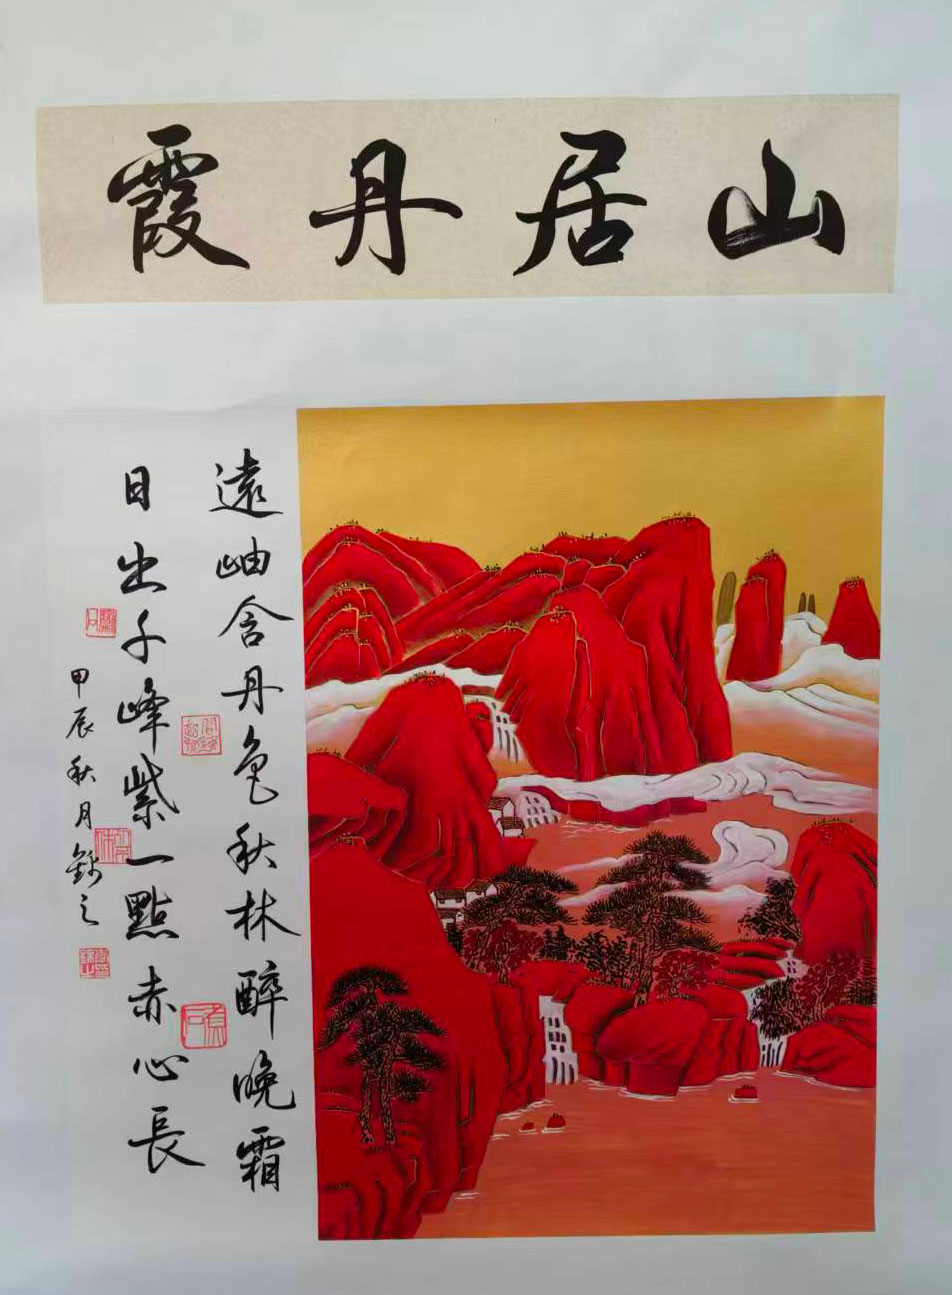 山居丹霞
遠岫含丹色秋林醉晚霜
日出千峰紫一點赤心長
甲辰秋月